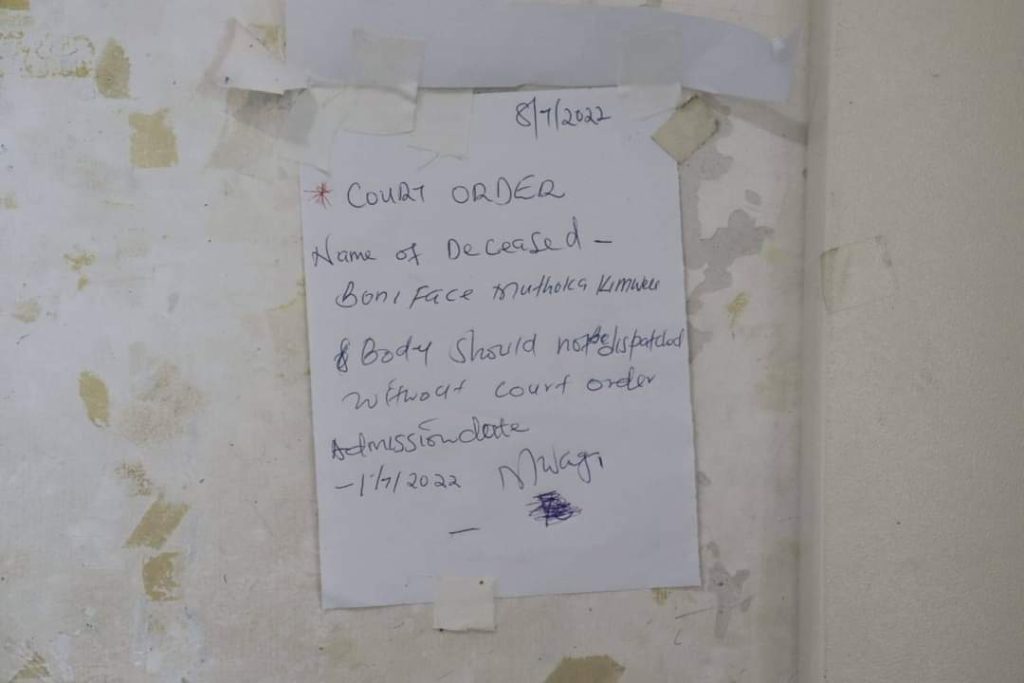 8/7/2022
* COURT ORDER
Name of Deceased -
Boniface Muthoka Kimweu
Body should not be dispatched
without court order
Admission date
- 1/7/2022 Mwagi